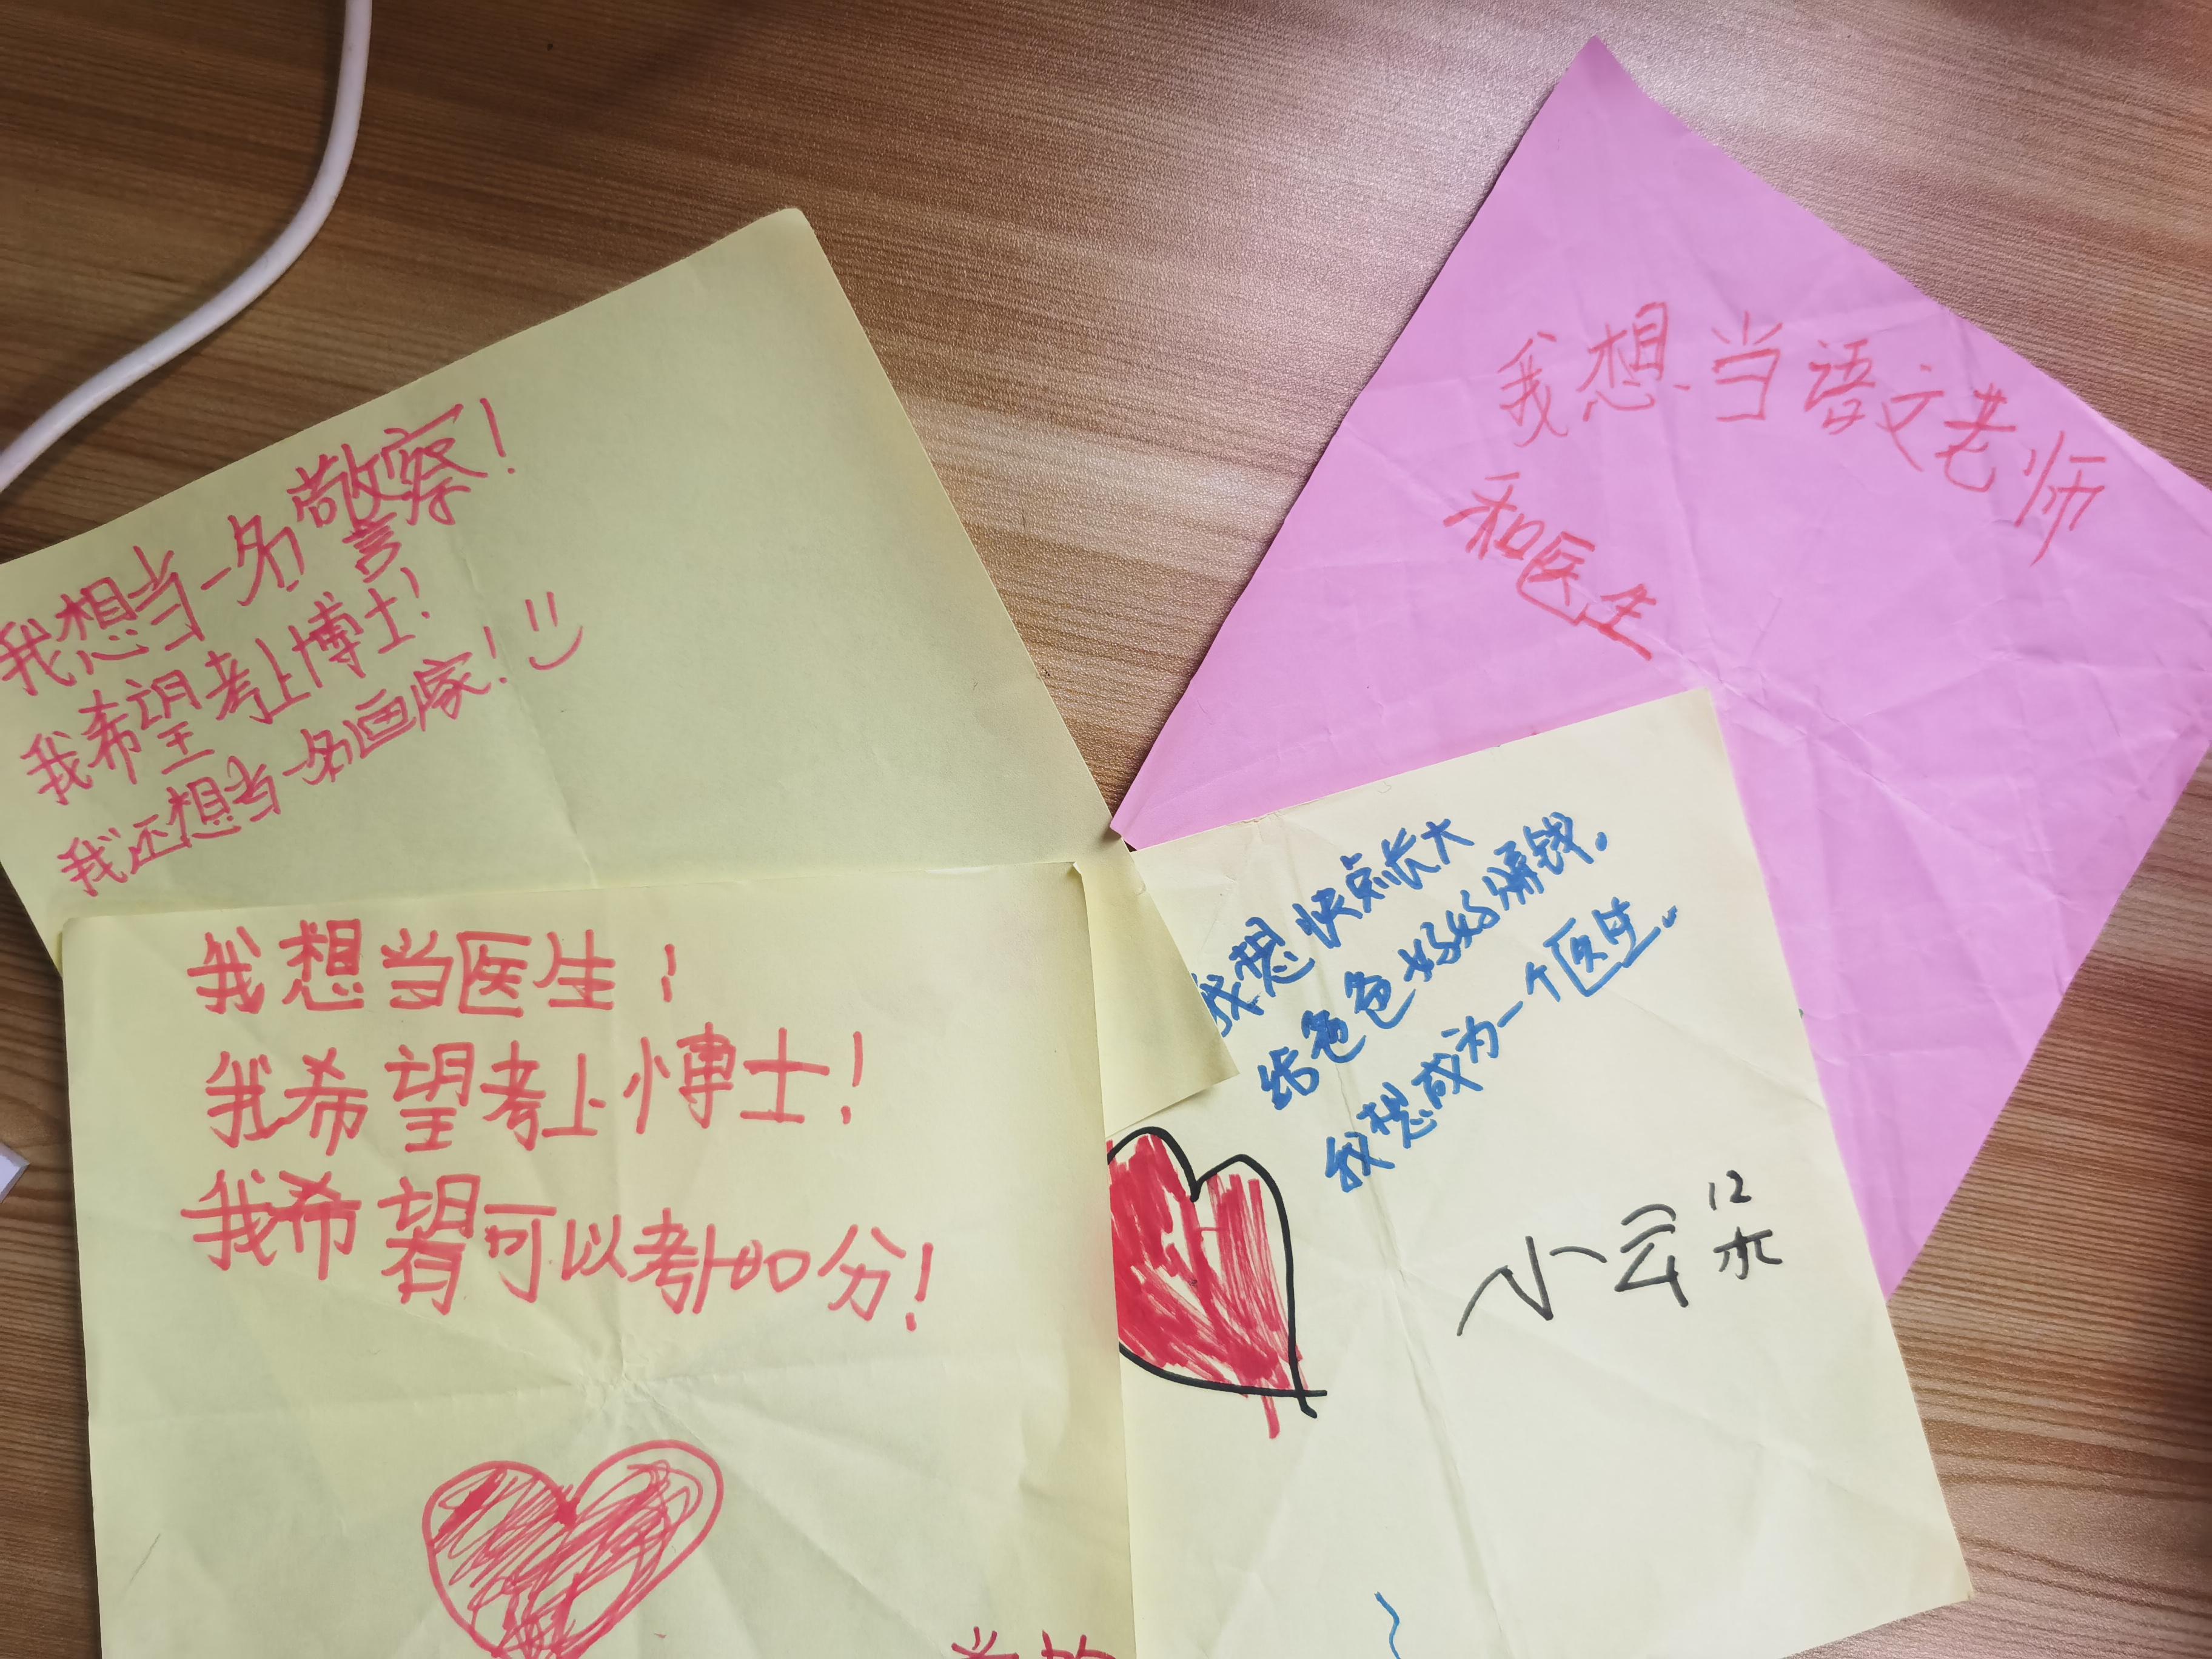 我想当一名警察！
我希望考上博士！
我还想当一名画家！
我想当语文老师
和医生
我想当医生！
我希望考上博士！
我希望有可以考100分！
我想快点长大
给爸爸好好挣钱.
我想成为一个医生.
小云朵
12